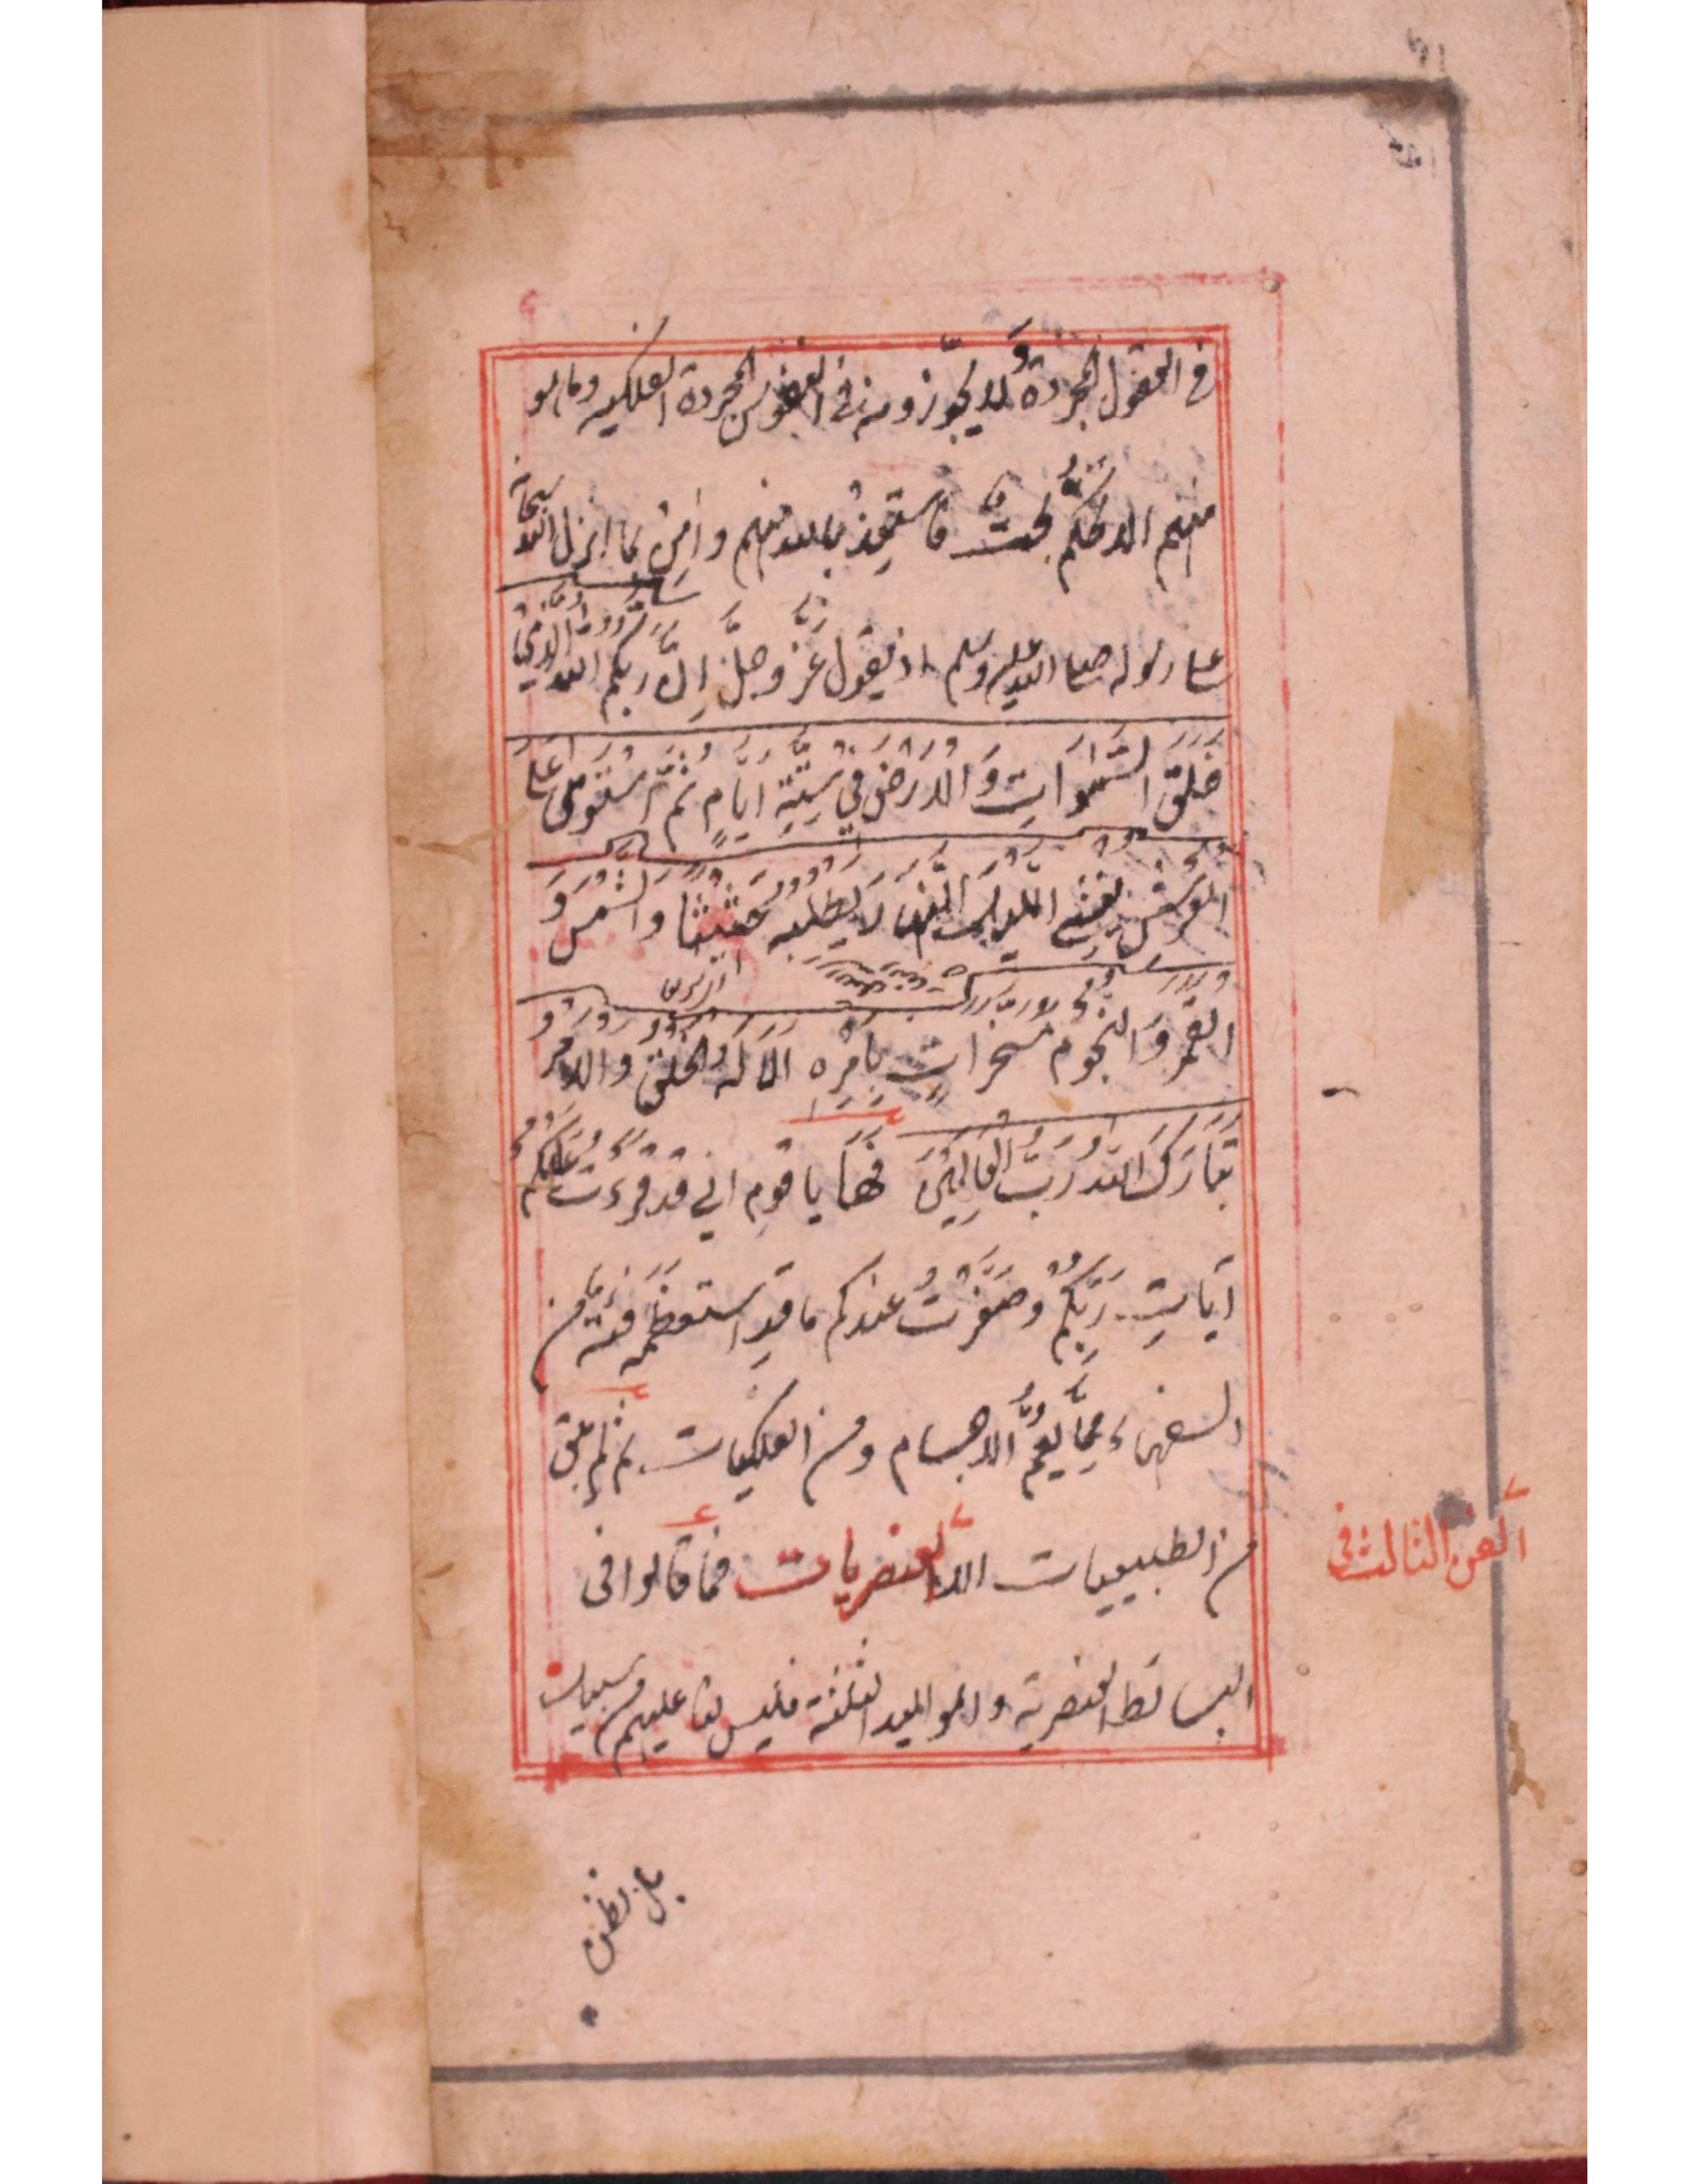 في العقول المجردة ولا يجوزونه في النفوس المجردة الفلكيه وما هو
منهم الا تحكُّم بحت فاستعِذ بالله منهم وامِن بما انزل الله سبحانه
على رسوله صلى الله عليه وسلم اذ يقول عَزَّ وجلَّ اِنَّ ربكم الله الَّذِي
خَلَقَ السَّمٰوَاتِ وَالْاَرْضَ فِي سِتَّةِ اَيَّامٍ ثُمَّ اسْتَوٰى عَلَى
الْعَرْشِ يُغْشِي اللَّيْلَ النَّهَارَ يَطْلُبُهُ حَثِيثًا وَالشَّمْسَ وَ
الْقَمَرَ وَالنُّجُومَ مُسَخَّرَاتٍ بِاَمْرِهِ اَلَا لَهُ الْخَلْقُ وَالْاَمْرُ
تَبَارَكَ اللهُ رَبُّ الْعَالَمِيْنَ فها يا قوم اني قد قرءت عليكم
اٰيَاتِ رَبِّكُمْ وصَغَّرْتُ عندكم ما قد استعظمه فئة من
السفهاء مِمَّا يعُمُّ الاجسام ومن الفلكيات ثم لم يبق
من الطبيعيات الا العنصريات فما قالوا في
البسائط العنصرية والمواليد الثلثة فليس لنا عليهم من سبيل
الفن الثالث في
بل نظن